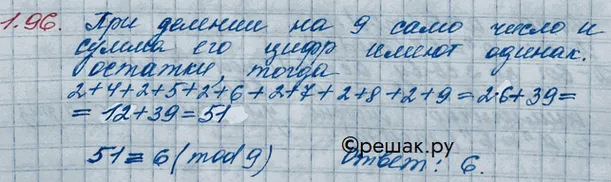 1.96. При делении на 9 само число и
сумма его цифр имеют одинак.
остатки, тогда
2+4+2+5+2+6+2+7+2+8+2+9=2·6+39=
=12+39=51
©решак.ру
51≡6(mod 9) Ответ: 6.